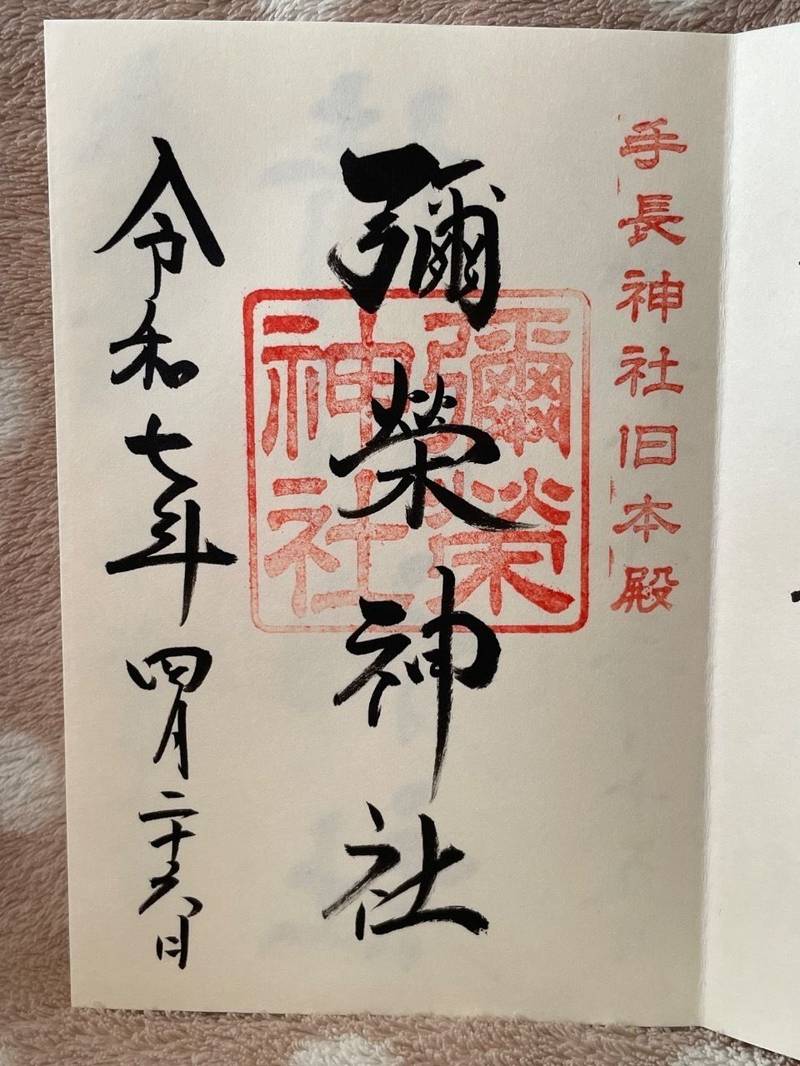 手長神社旧本殿
彌榮神社
彌榮
神社
令和七年四月二十六日